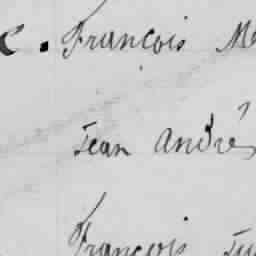 François
Jean André
François